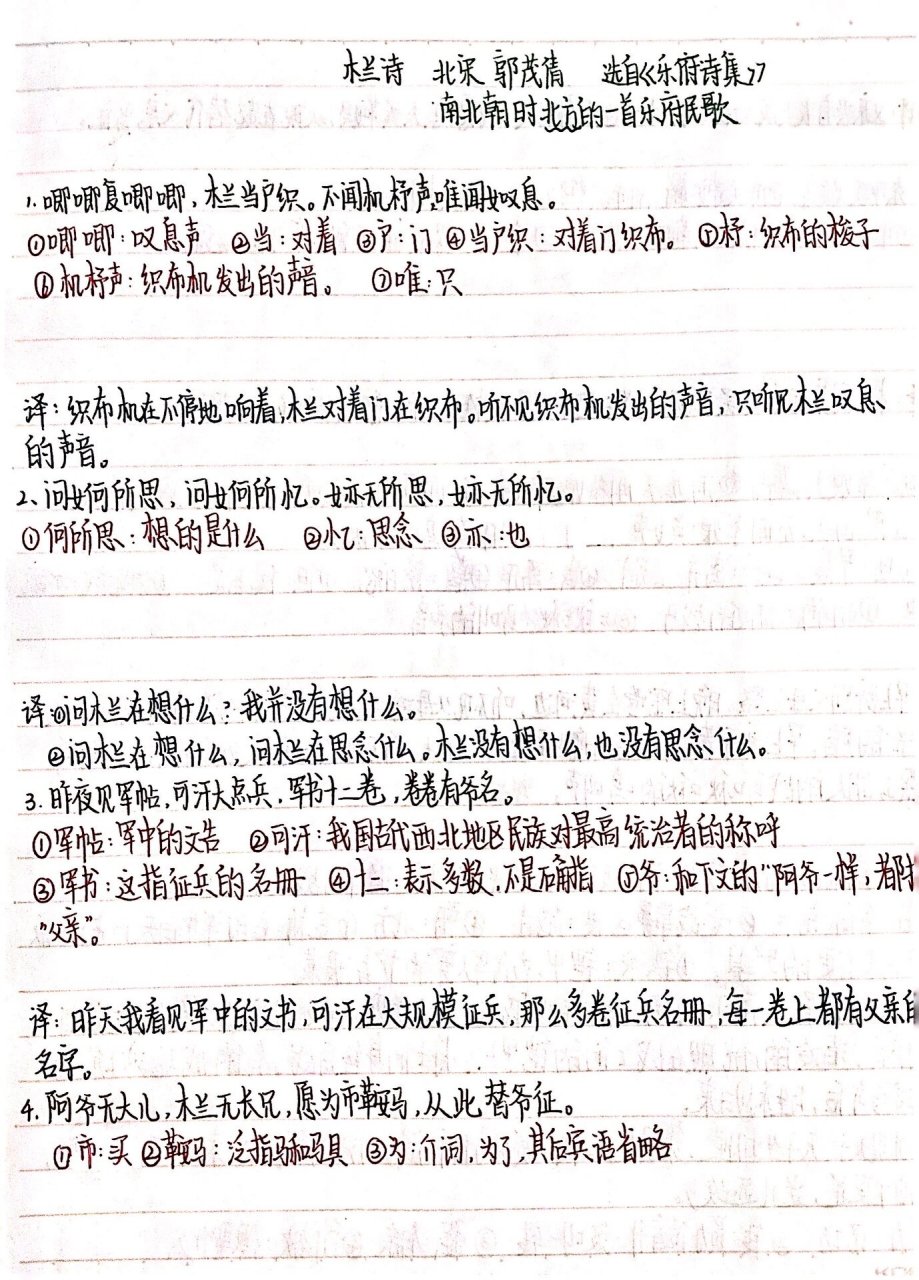 木兰诗 北宋 郭茂倩 选自《乐府诗集》
南北朝时北方的一首乐府民歌
1.唧唧复唧唧，木兰当户织。不闻机杼声，唯闻女叹息。
①唧唧：叹息声 ②当：对着 ③户：门 ④当户织：对着门织布。 ⑤杼：织布的梭子
⑥机杼声：织布机发出的声音。 ⑦唯：只
译：织布机在不停地响着，木兰对着门在织布。听不见织布机发出的声音，只听见木兰叹息
的声音。
2、问女何所思，问女何所忆。女亦无所思，女亦无所忆。
①何所思：想的是什么 ②忆：思念 ③亦：也
译：①问木兰在想什么？我并没有想什么。
②问木兰在想什么，问木兰在思念什么。木兰没有想什么，也没有思念什么。
3.昨夜见军帖，可汗大点兵，军书十二卷，卷卷有爷名。
①军帖：军中的文告 ②可汗：我国古代西北地区民族对最高统治者的称呼
③军书：这指征兵的名册 ④十二：表示多数，不是确指 ⑤爷：和下文的“阿爷一样，都指
“父亲”。
译：昨天我看见军中的文书，可汗在大规模征兵，那么多卷征兵名册，每一卷上都有父亲的
名字。
4.阿爷无大儿，木兰无长兄，愿为市鞍马，从此替爷征。
①市：买 ②鞍马：泛指马和马具 ③为：介词，为了，其后宾语省略